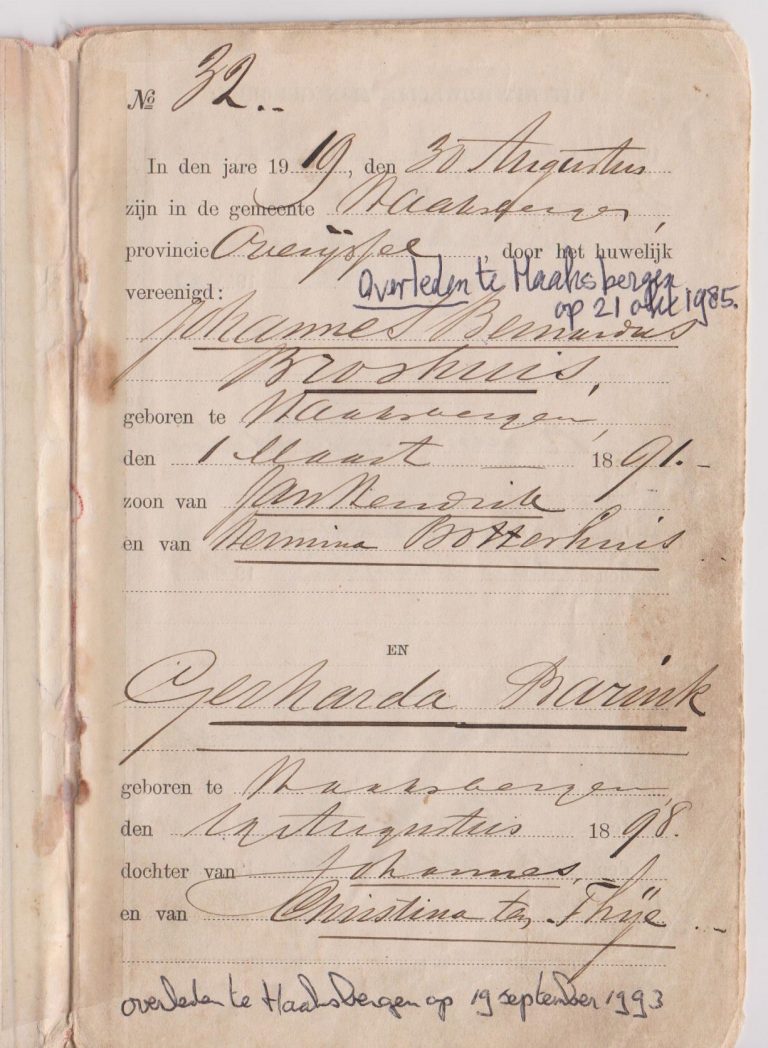 No 32..
In den jare 1919, den 30 Augustus
zijn in de gemeente Haaksbergen,
provincie Overijssel, door het huwelijk
vereenigd:
Overleden te Haaksbergen
op 21 okt 1985.
Johannes Bernardus
Broshuis,
geboren te Haaksbergen,
den 1 Maart 1891.
zoon van Jan Hendrik
en van Hermina Botterhuis
EN
Gerharda Barink
geboren te Haaksbergen,
den Augustus 1898.
dochter van Johannes,
en van Christina ten Thije
overleden te Haaksbergen op 19 september 1993